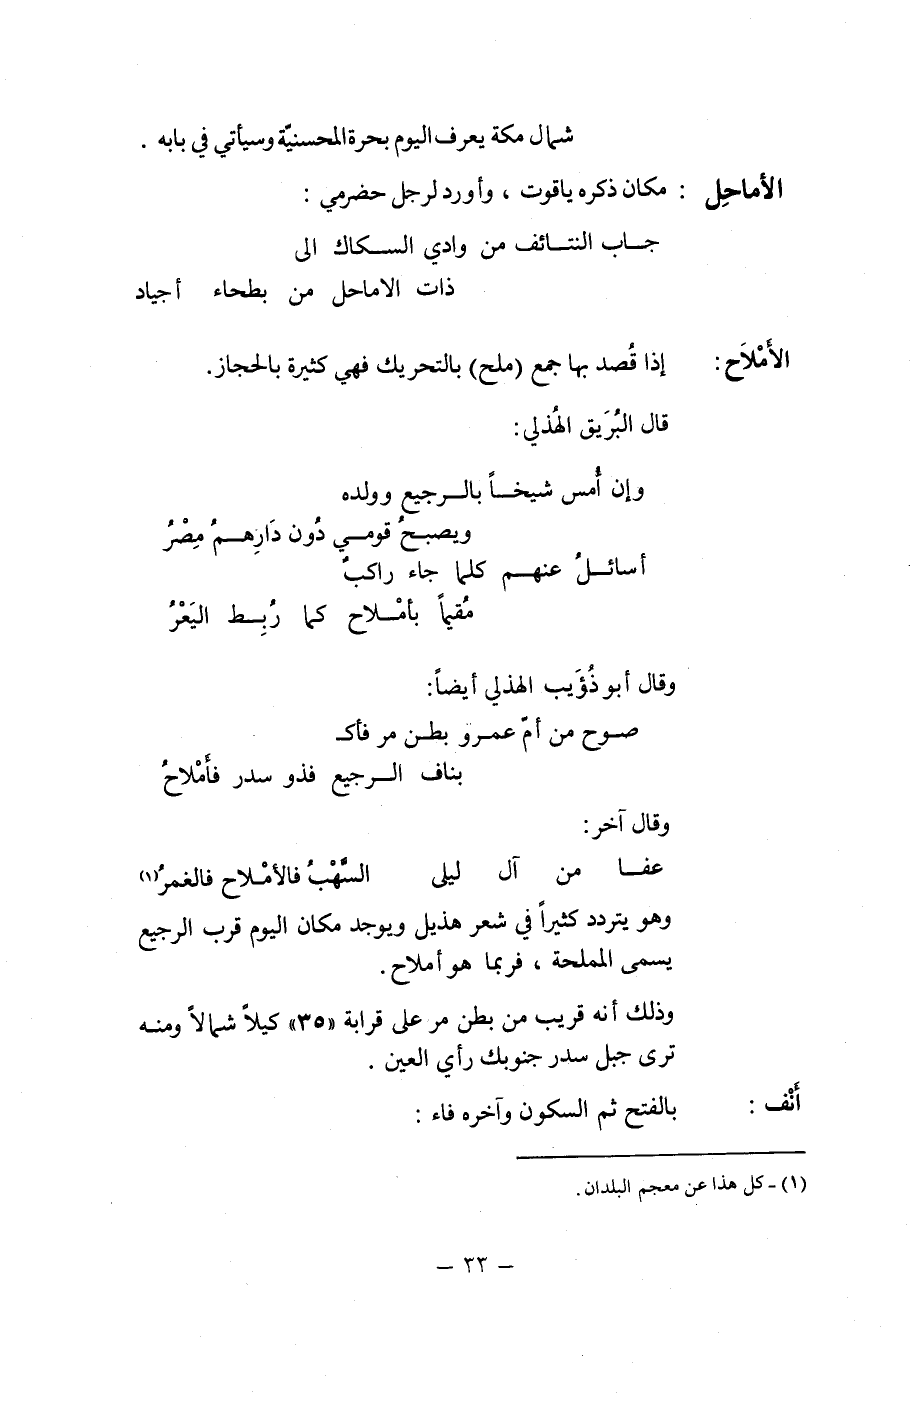 شمال مكة يعرف اليوم بحرة المحسنيّة وسيأتي في بابه .
الأماحِل : مكان ذكره ياقوت ، وأورد لرجل حضرمي :
جـاب التنـائف من وادي السـكاك الى
ذات الاماحل من بطحاء أجياد
الأَمْلاَح : إذا قُصد بها جمع (ملح) بالتحريك فهي كثيرة بالحجاز.
قال البُرَيق الهُذلي:
وإن أُمس شيخـاً بالـرجيع وولده
ويصبـحُ قومـي دُون دَارِهـمُ مِصْرُ
أسائـلُ عنهـم كلما جاء راكبٌ
مُقيماً بأمْـلاح كما رُبِـط اليَعْرُ
وقال أبو ذُؤَيب الهذلي أيضاً:
صـوح من أمّ عمـرو بطـن مر فأكـ
بناف الـرجيع فذو سدر فأَمْلاحُ
وقال آخر:
عفـا من آل ليلى السَّهْبُ فالأمْـلاح فالغمرُ(١)
وهو يتردد كثيراً في شعر هذيل ويوجد مكان اليوم قرب الرجيع
يسمى المملحة ، فربما هو أملاح.
وذلك أنه قريب من بطن مر على قرابة «٣٥» كيلاً شمالاً ومنـه
ترى جبل سدر جنوبك رأي العين .
أَنْف : بالفتح ثم السكون وآخره فاء :
(١) ـ كل هذا عن معجم البلدان.
— ٣٣ —